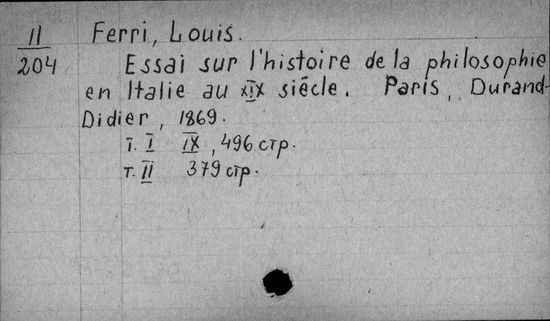 11/204 Ferri, Louis.
Essai sur l'histoire de la philosophie
en Italie au XIX siécle. Paris, Durand-
Didier, 1869.
т. I IX, 496 стр.
т. II 379 стр.